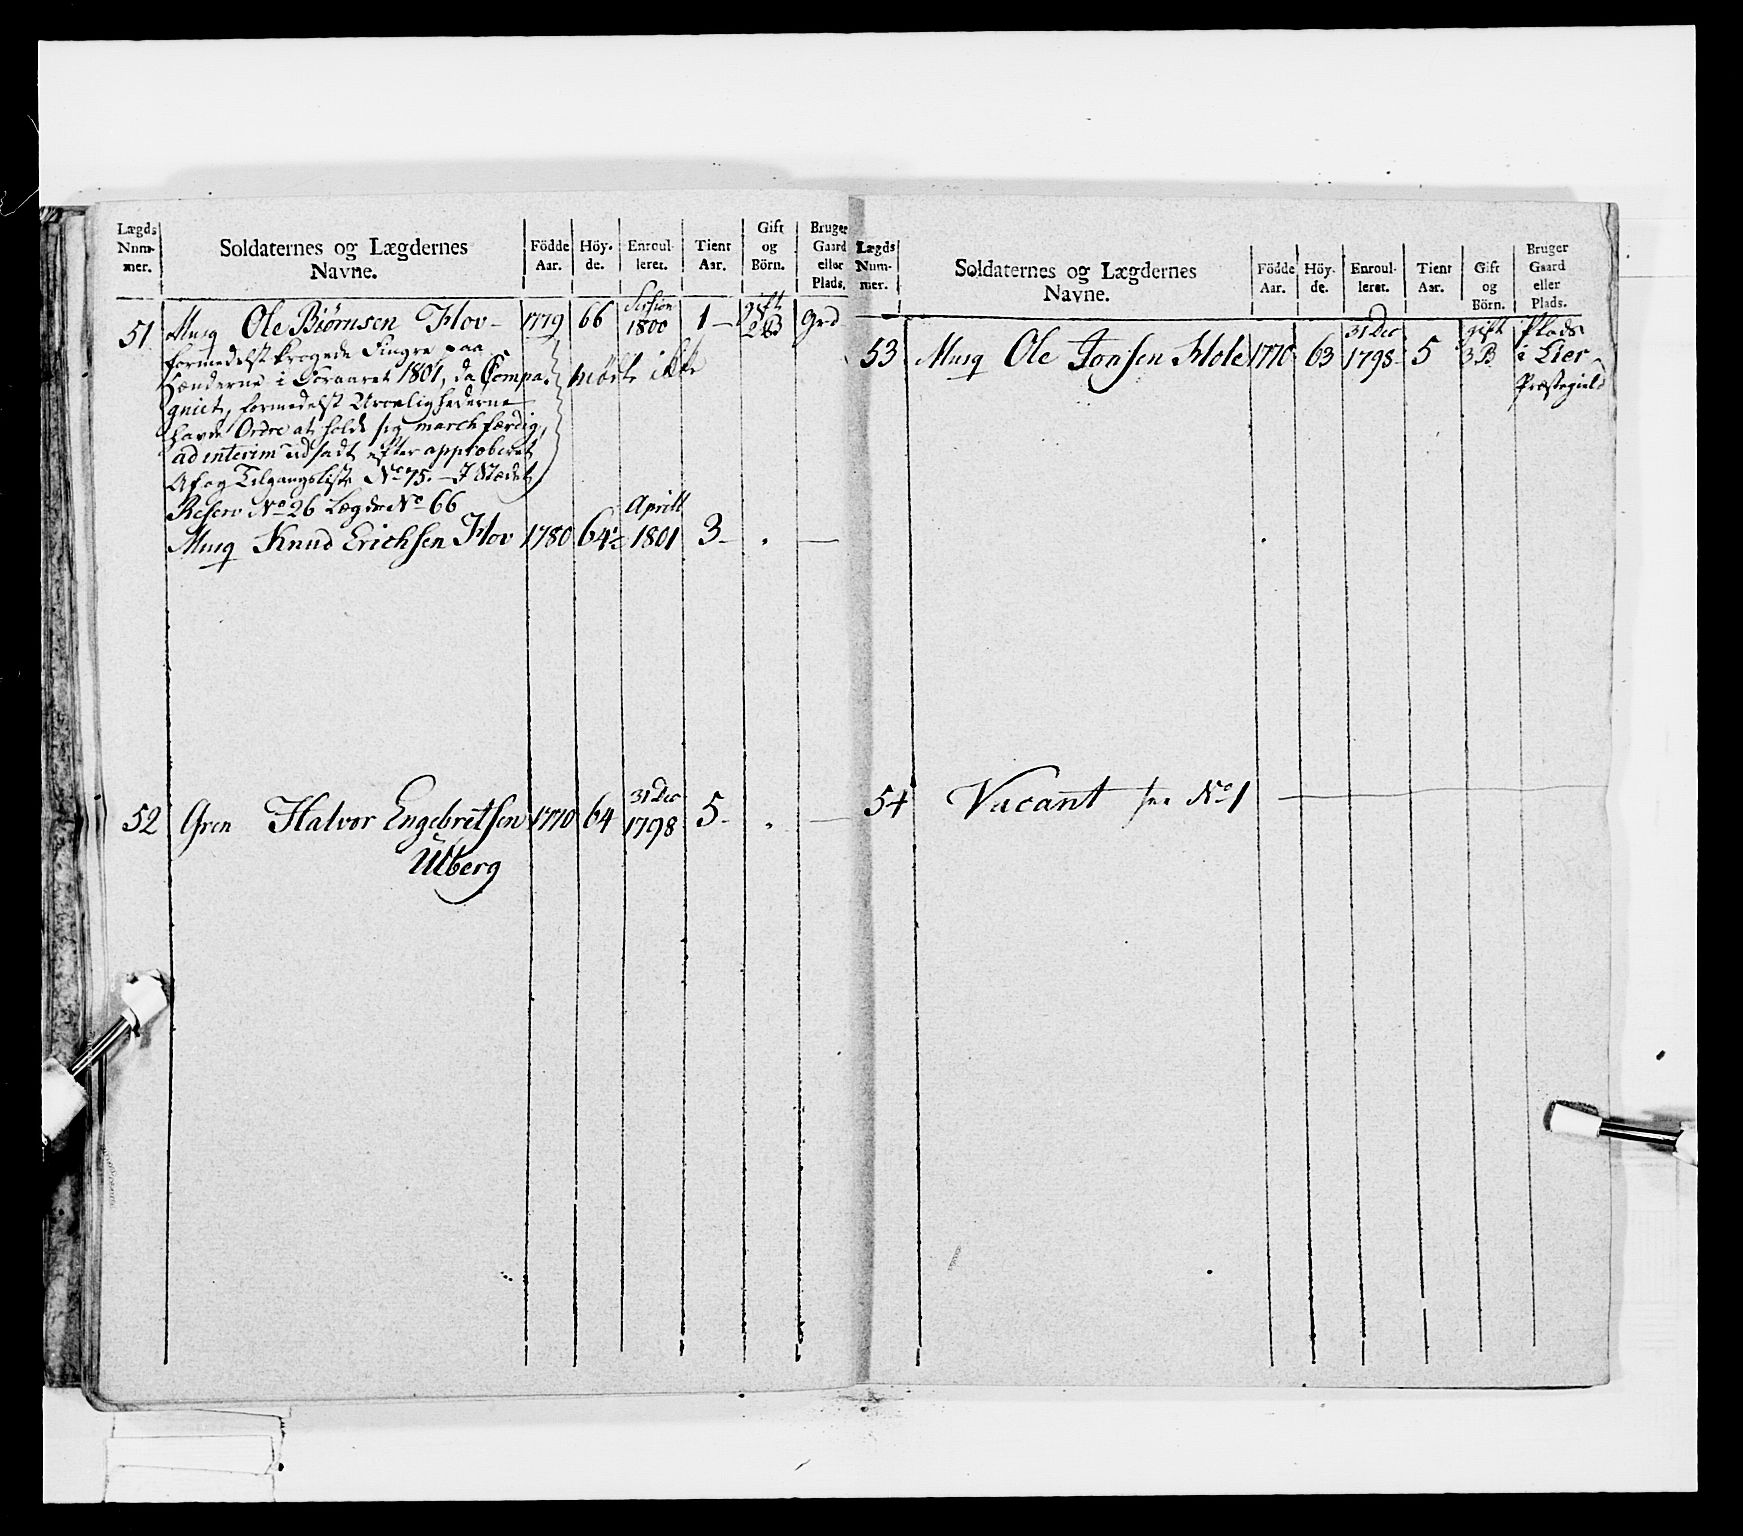 Lægds Num- mer.
Soldaternes og Lægdernes Navne.
Födde Aar.
Höy- de.
Enroul- leret.
Tient Aar.
Gift og Börn.
Bruger Gaard eller Plads.
51 Musq Ole Biörnsen Hov- 1779 66 Session 1800 1- gift 2 B Grd
formedelst krogede Fingre paa
Hænderne i Foraaret 1801, da Compa- mödte ikke
gniet, formedelst Uroelighederne
havde Ordre at holde sig march færdig,
ad interim udsadt efter approberet
Af og Tilgangsliste No 75. - I Stædet
Reserv No 26 Lægds No 66
Musq Knud Erichsen Hov 1780 64½ Aprill 1801 3- . —
52 Gren Halvor Engebretsen 1770 64 31 Dec 1798 5- . —
Ulberg
Lægds Num- mer.
Soldaternes og Lægdernes Navne.
Födde Aar.
Höy- de.
Enroul- leret.
Tient Aar.
Gift og Börn.
Bruger Gaard eller Plads.
53 Musq Ole Jonsen Hole 1770 63 31 Dec 1798 5 gift 3 B Plads
i Lier
Præstegield
54 Vacant see No 1